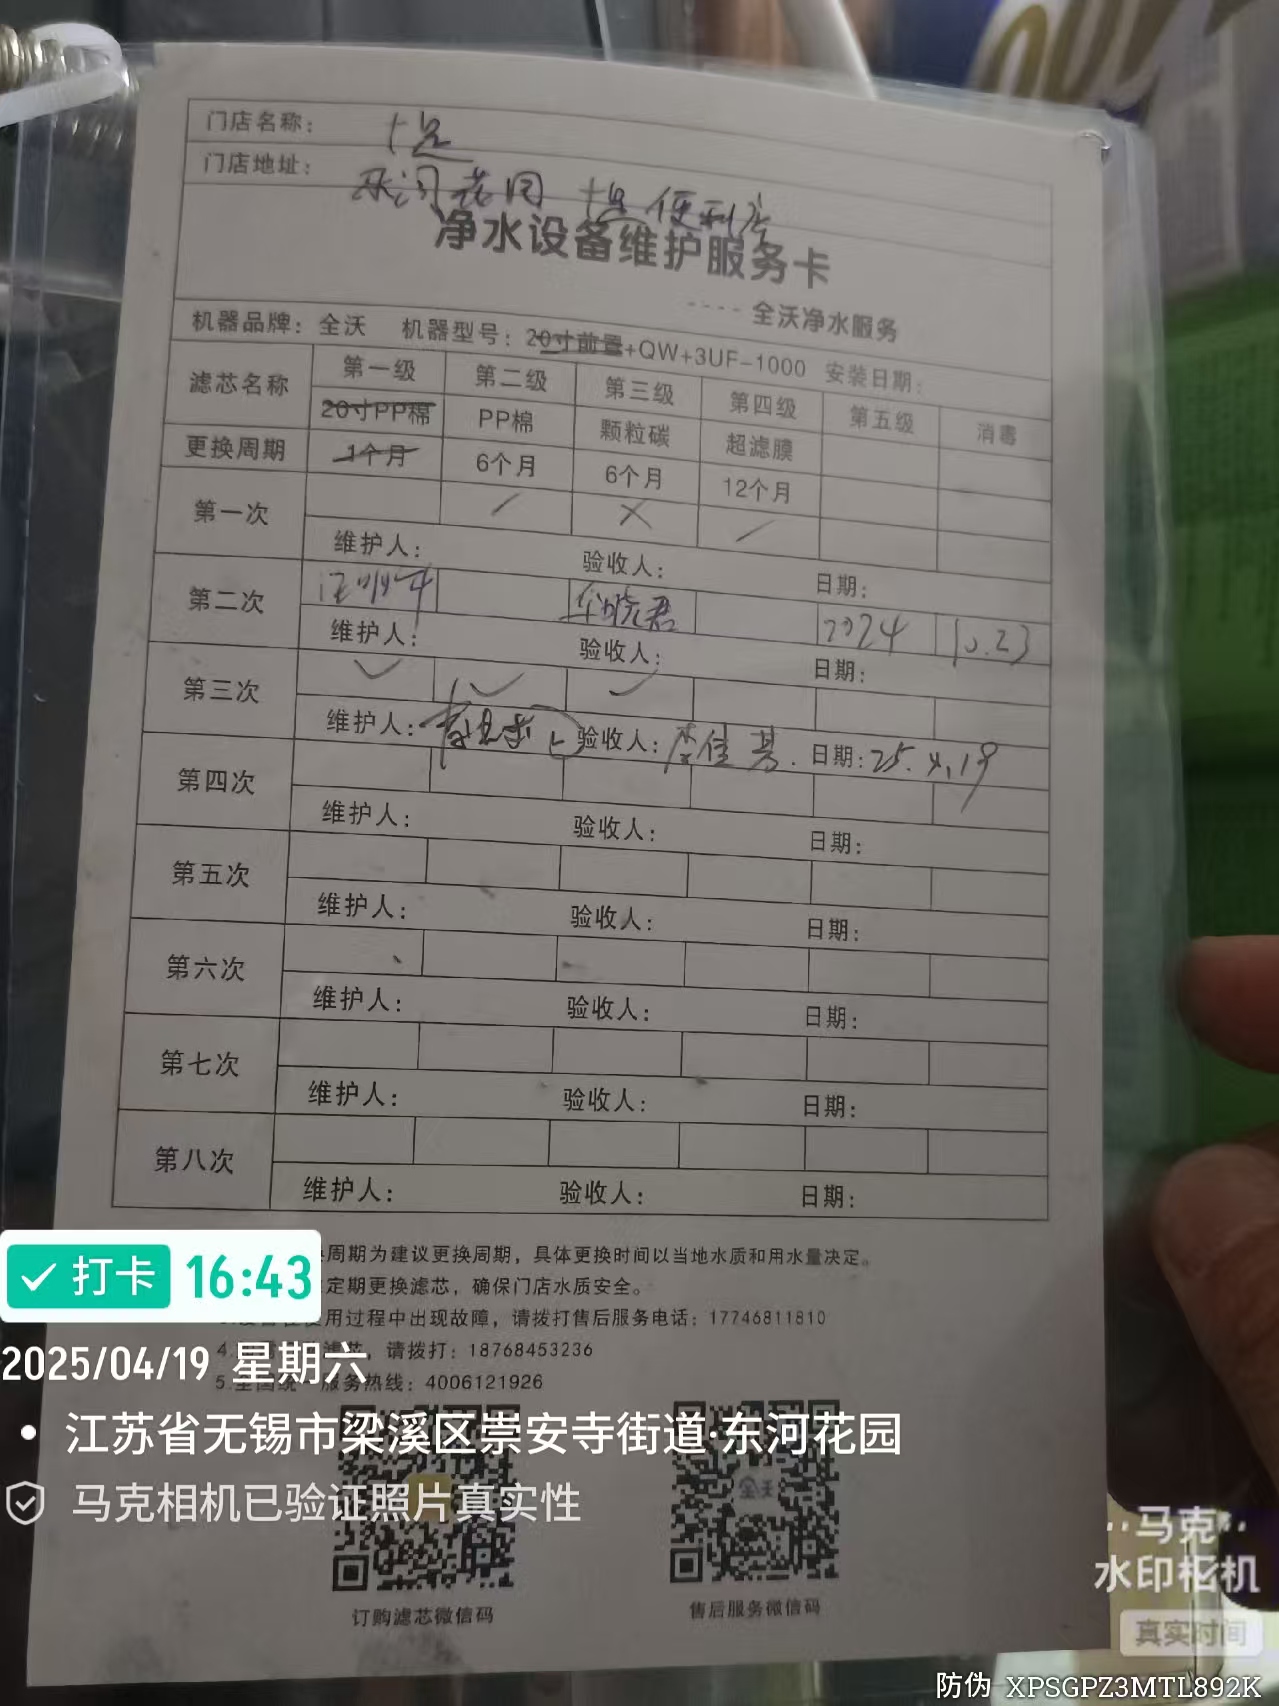 门店名称： 十足
门店地址： 东河花园 十足便利店
净水设备维护服务卡
---- 全沃净水服务
机器品牌：全沃 机器型号：20寸前置+QW+3UF-1000 安装日期：
滤芯名称 第一级 第二级 第三级 第四级 第五级 消毒
20寸PP棉 PP棉 颗粒碳 超滤膜
更换周期 1个月 6个月 6个月 12个月
第一次
维护人： 验收人： 日期：
第二次 2024 10.23
维护人： 验收人： 日期：
第三次
维护人： 验收人：李佳 日期：25.4.19
第四次
维护人： 验收人： 日期：
第五次
维护人： 验收人： 日期：
第六次
维护人： 验收人： 日期：
第七次
维护人： 验收人： 日期：
第八次
维护人： 验收人： 日期：
周期为建议更换周期，具体更换时间以当地水质和用水量决定。
定期更换滤芯，确保门店水质安全。
用过程中出现故障，请拨打售后服务电话：17746811810
4. 滤芯，请拨打：18768453236
5.全国统一服务热线：4006121926
订购滤芯微信码
售后服务微信码
全沃
打卡 16:43
2025/04/19 星期六
江苏省无锡市梁溪区崇安寺街道·东河花园
马克相机已验证照片真实性
马克
水印相机
真实时间
防伪 XPSGPZ3MTL892K